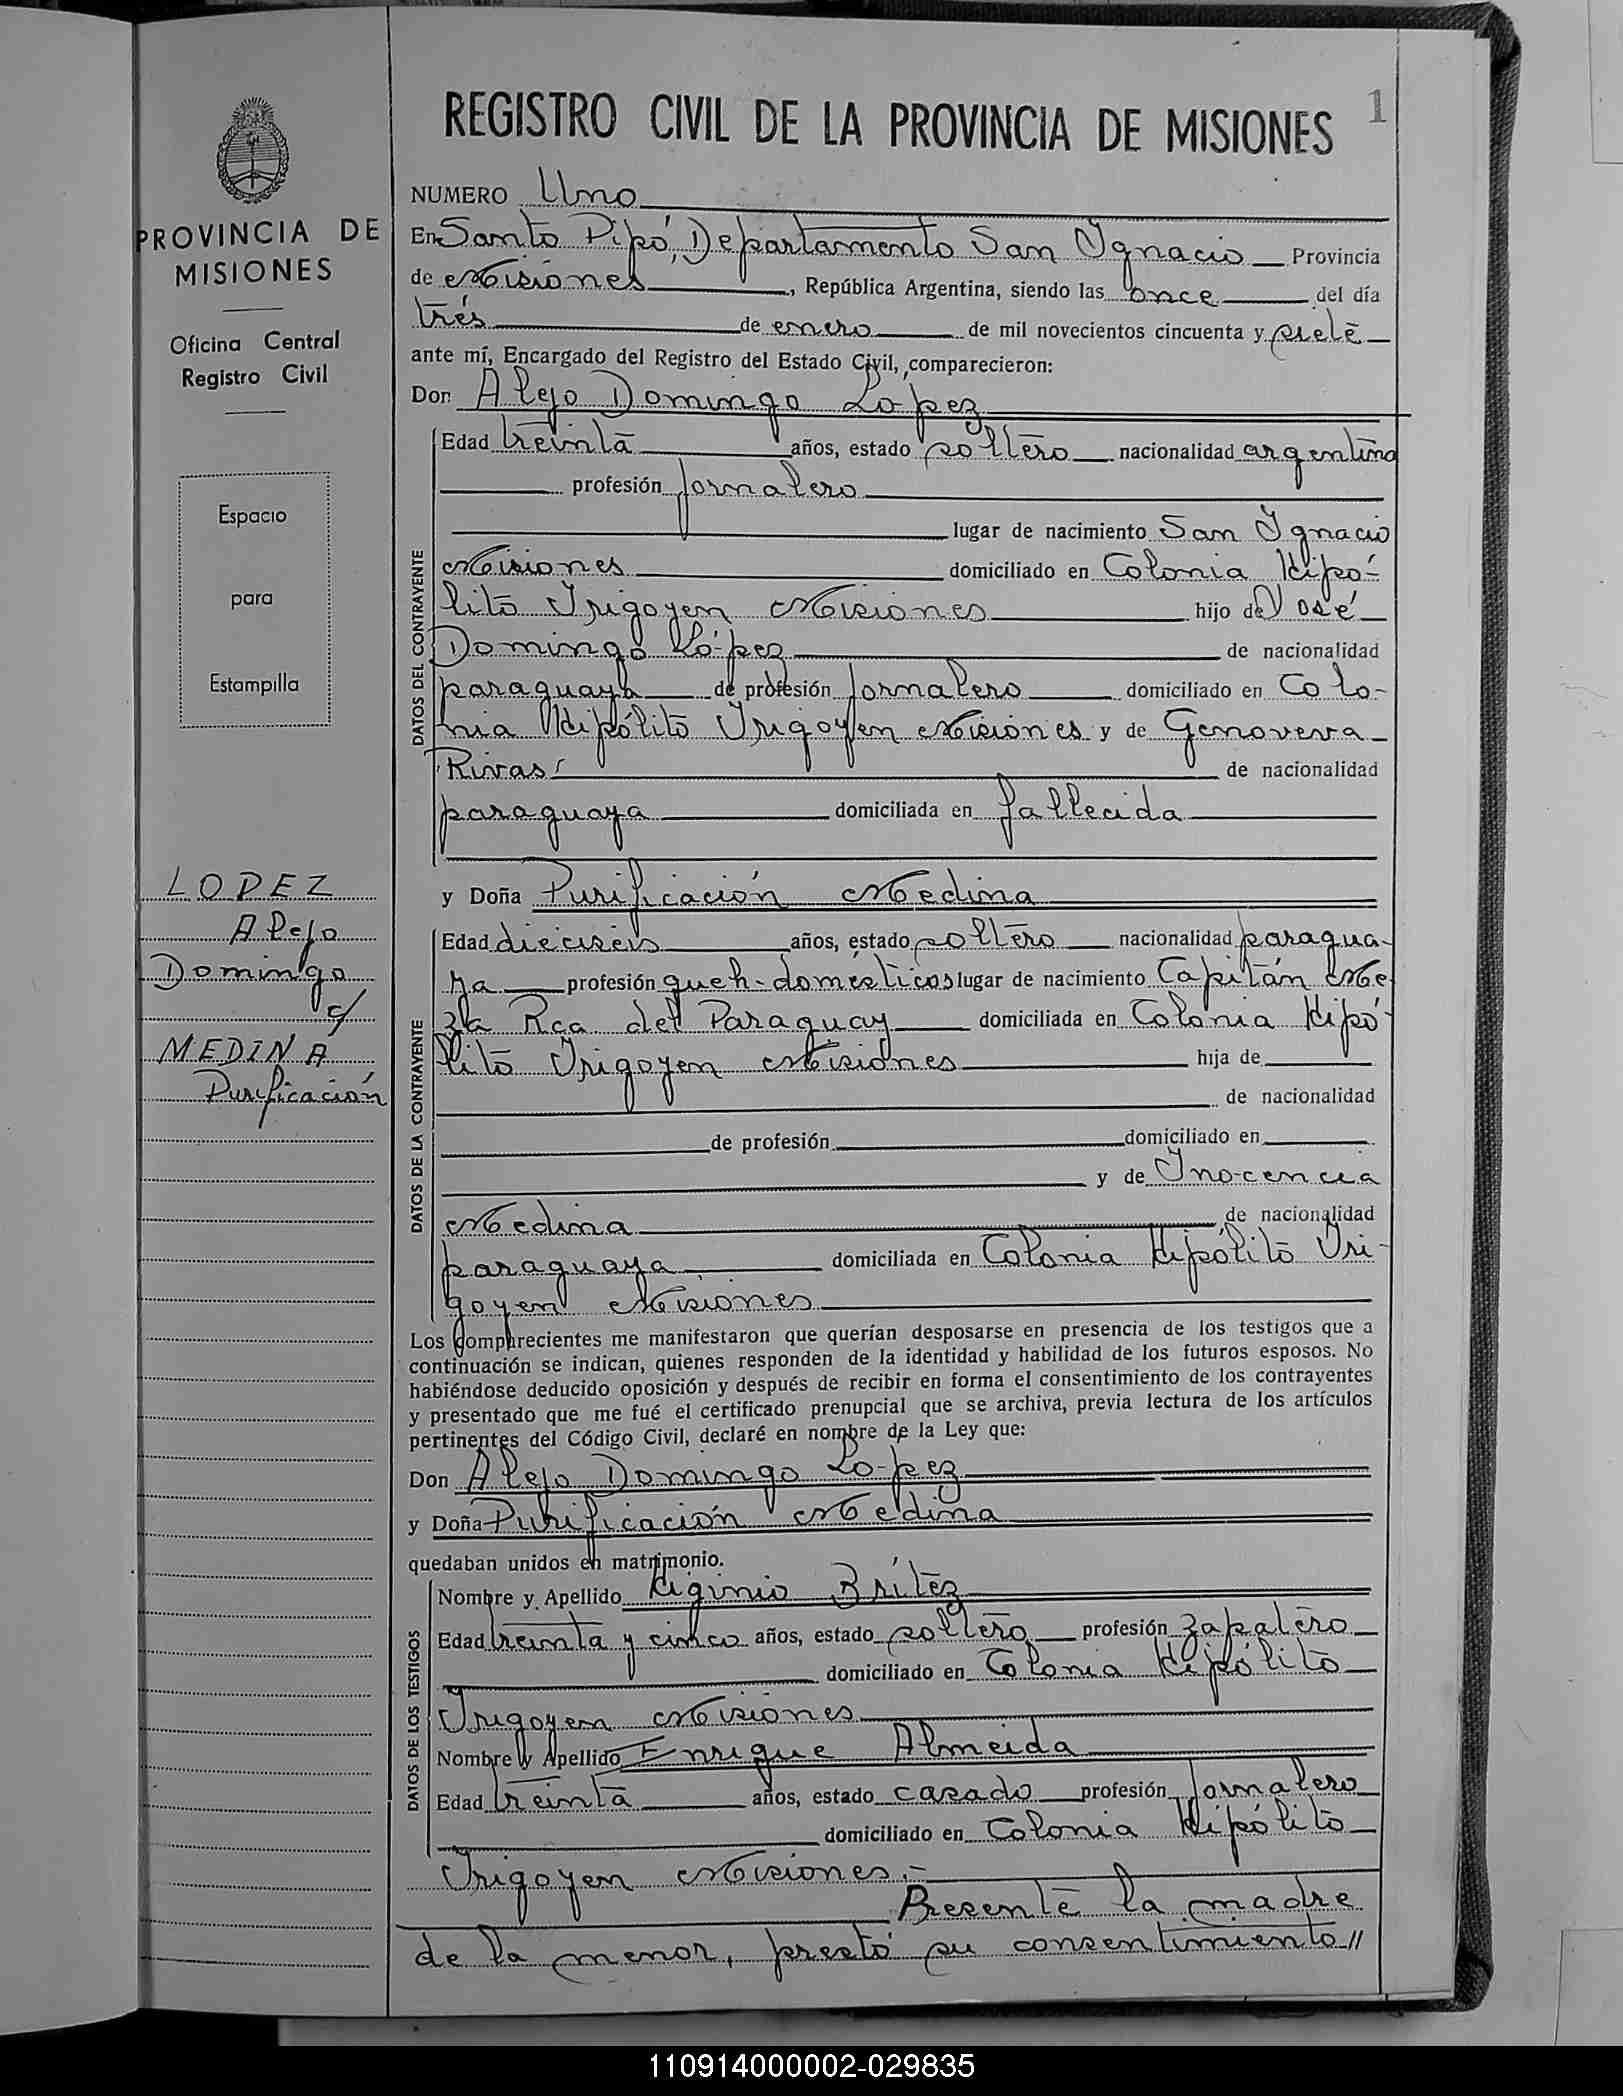 REGISTRO CIVIL DE LA PROVINCIA DE MISIONES
1
PROVINCIA DE
MISIONES
Oficina Central
Registro Civil
Espacio
para
Estampilla
LOPEZ
Alejo
Domingo
c/
MEDINA
Purificación
NUMERO Uno
En Santo Pipó, Departamento San Ygnacio Provincia
de Misiones, República Argentina, siendo las once del día
trés de enero de mil novecientos cincuenta y siete
ante mí, Encargado del Registro del Estado Civil, comparecieron:
Don Alejo Domingo López
DATOS DEL CONTRAYENTE
Edad treinta años, estado soltero nacionalidad argentina
profesión jornalero
lugar de nacimiento San Ygnacio
Misiones domiciliado en Colonia Hipó-
lito Yrigoyen Misiones hijo de José
Domingo López de nacionalidad
paraguaya de profesión jornalero domiciliado en Colo-
nia Hipólito Yrigoyen Misiones y de Genoveva
Rivas de nacionalidad
paraguaya domiciliada en fallecida
y Doña Purificación Medina
DATOS DE LA CONTRAYENTE
Edad dieciseis años, estado soltero nacionalidad paragua-
ya profesión queh-domésticos lugar de nacimiento Capitán Me
za Rca del Paraguay domiciliada en Colonia Hipó-
lito Yrigoyen Misiones hija de
de nacionalidad
de profesión domiciliado en
y de Ynocencia
Medina de nacionalidad
paraguaya domiciliada en Colonia Hipólito Yri-
goyen Misiones
Los comparecientes me manifestaron que querían desposarse en presencia de los testigos que a
continuación se indican, quienes responden de la identidad y habilidad de los futuros esposos. No
habiéndose deducido oposición y después de recibir en forma el consentimiento de los contrayentes
y presentado que me fué el certificado prenupcial que se archiva, previa lectura de los artículos
pertinentes del Código Civil, declaré en nombre de la Ley que:
Don Alejo Domingo López
y Doña Purificación Medina
quedaban unidos en matrimonio.
DATOS DE LOS TESTIGOS
Nombre y Apellido Higinio Brítez
Edad treinta y cinco años, estado soltero profesión zapatero
domiciliado en Colonia Hipólito
Yrigoyen Misiones
Nombre y Apellido Enrique Almeida
Edad treinta años, estado casado profesión jornalero
domiciliado en Colonia Hipólito
Yrigoyen Misiones.-
Presente la madre
de la menor, prestó su consentimiento //
110914000002-029835